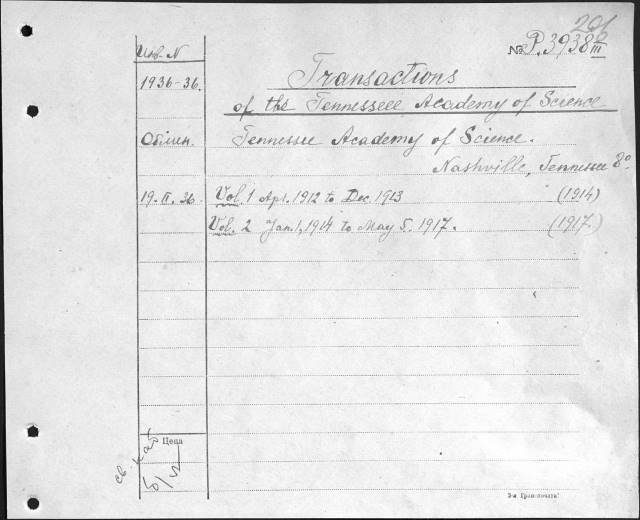 206
№ P.3938 III
Инв. N
1936-36.
Transactions
of the Tennesseee Academy of Science
Обмен.
Tennessee Academy of Science.
Nashville, Tennessee 8°
19.II.36.
Vol. 1 Apr. 1912 to Dec. 1913 (1914)
Vol. 2 Jan. 1, 1914 to May 5. 1917. (1917)
Цена
св. кат
б/п